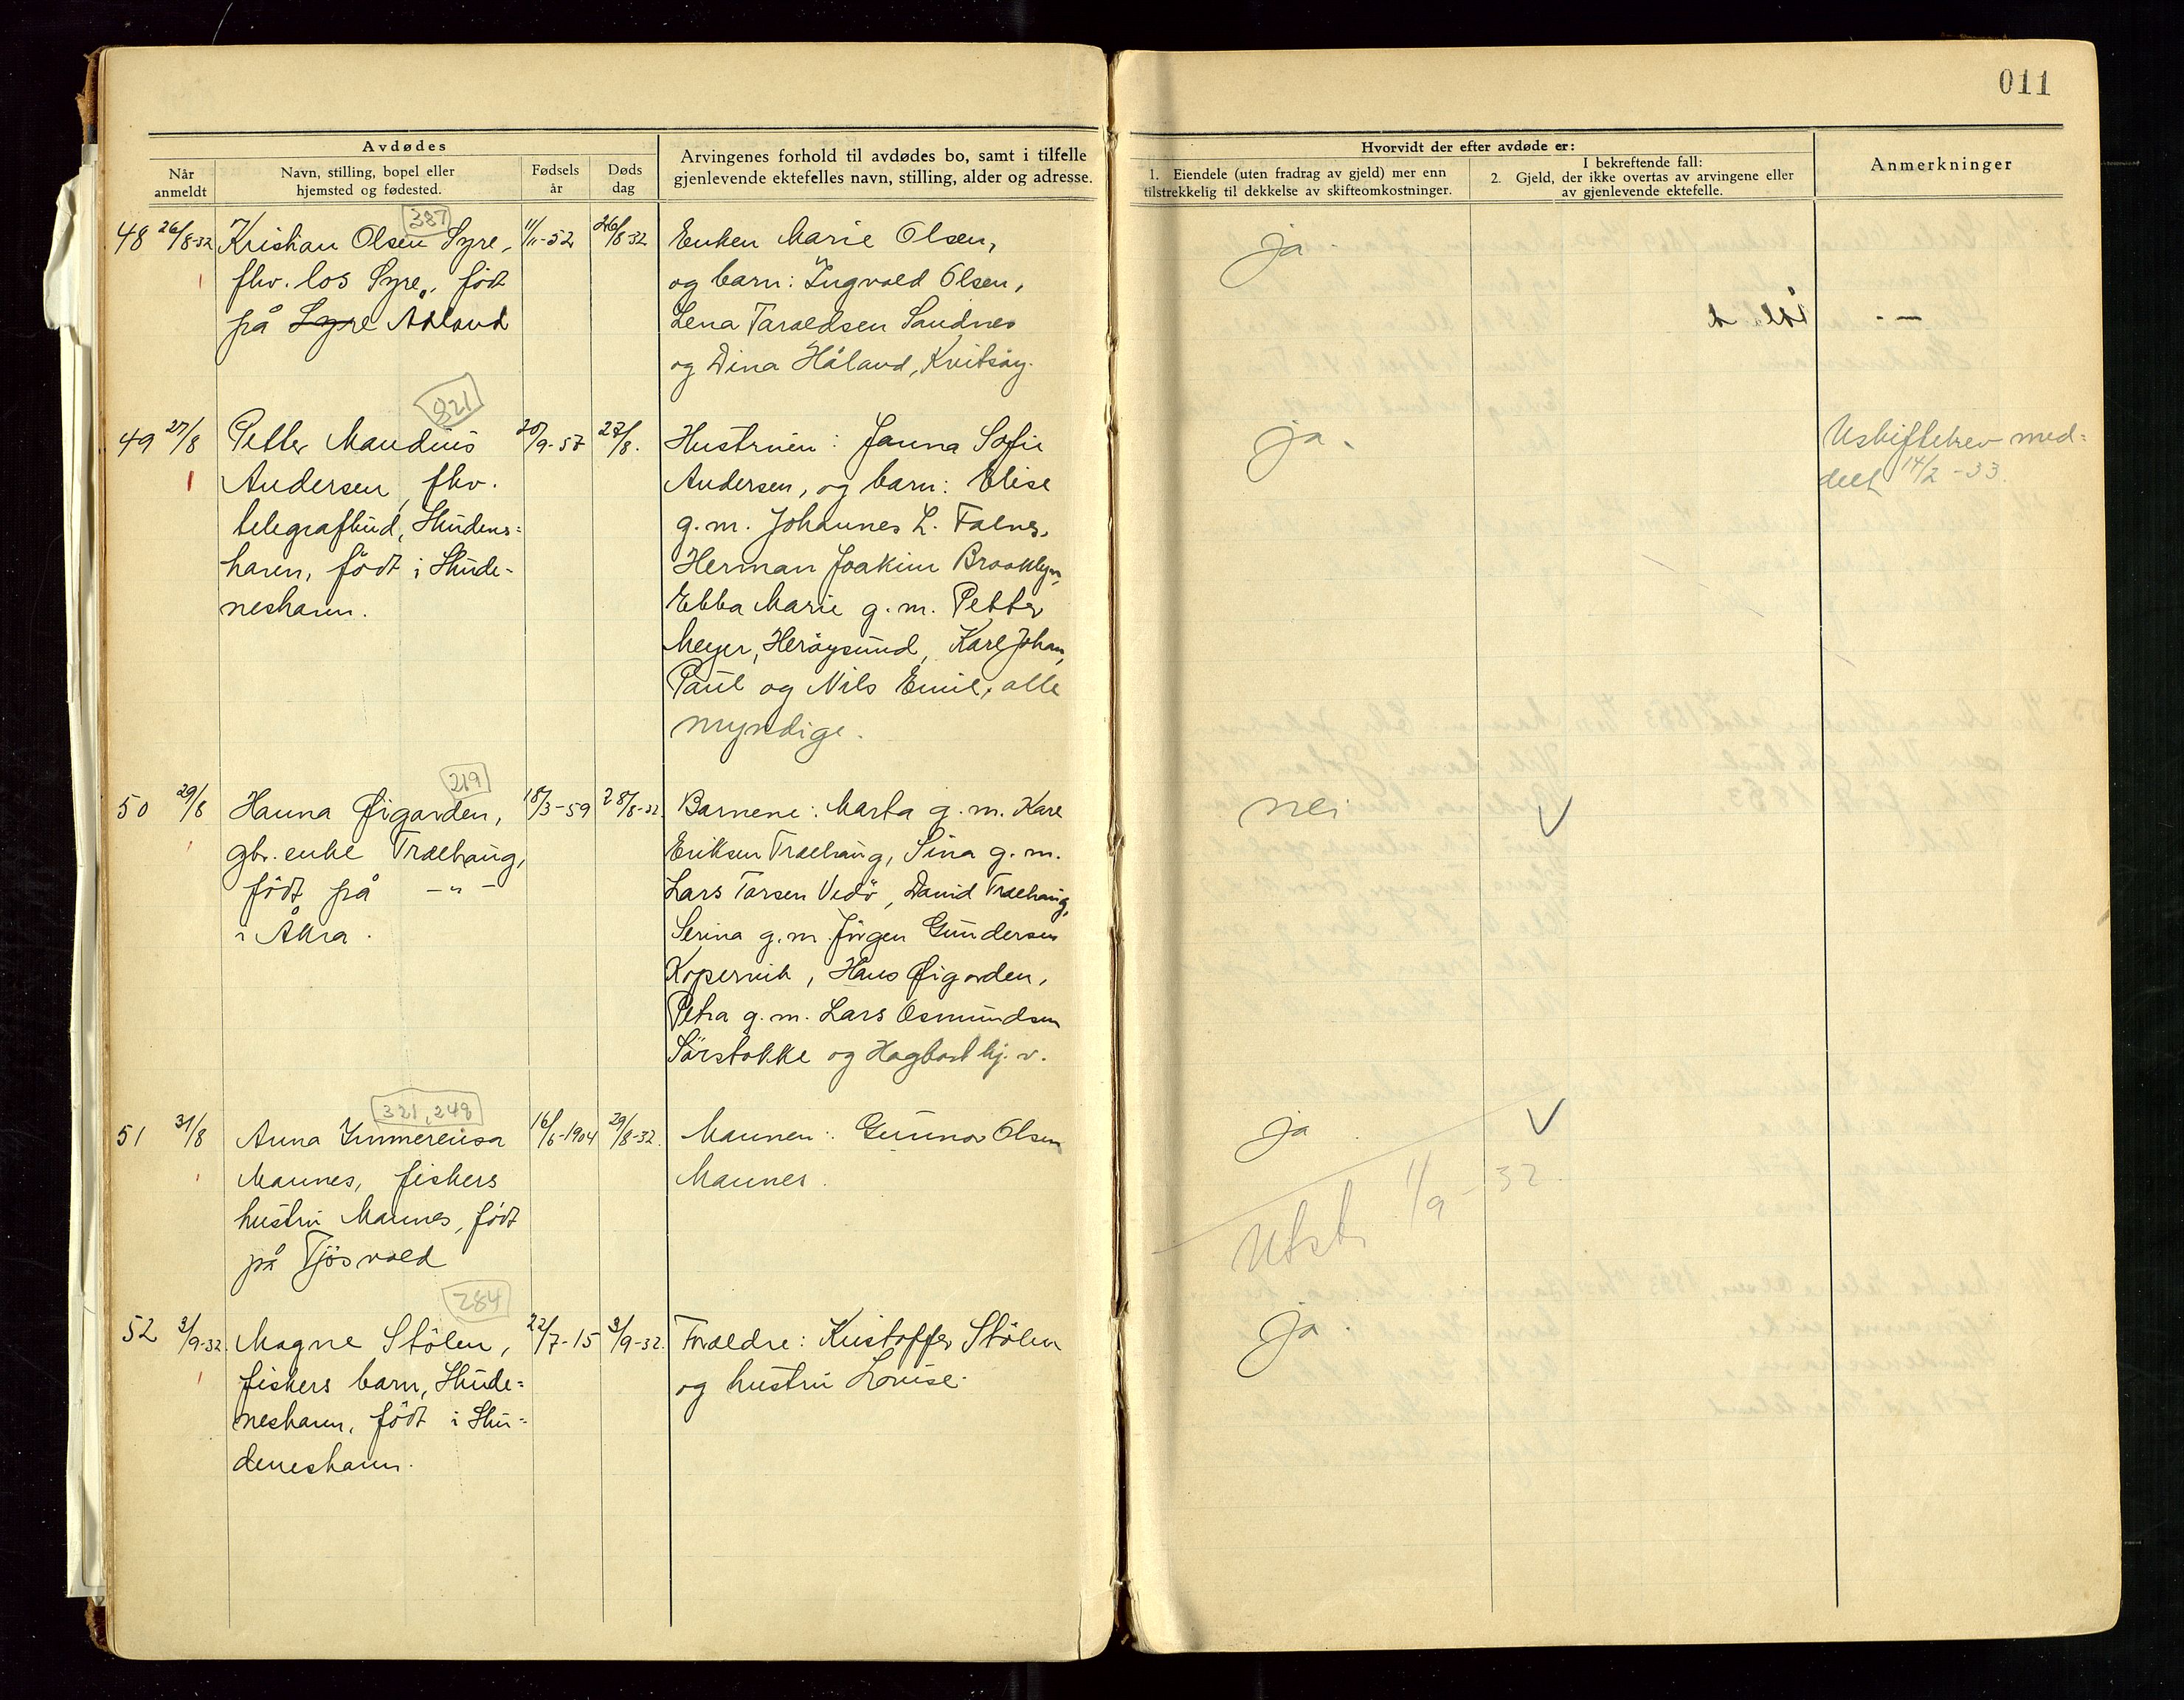 011
Avdødes
Når anmeldt
Navn, stilling, bopel eller hjemsted og fødested.
Fødsels år
Døds dag
Arvingenes forhold til avdødes bo, samt i tilfelle gjenlevende ektefelles navn, stilling, alder og adresse.
Hvorvidt der efter avdøde er:
1. Eiendele (uten fradrag av gjeld) mer enn tilstrekkelig til dekkelse av skifteomkostninger.
I bekreftende fall:
2. Gjeld, der ikke overtas av arvingene eller av gjenlevende ektefelle.
Anmerkninger
387
48 26/8-32 Kristian Olsen Syre, 11/11-52 26/8 32
fhv. los Syre, född
på Syre Ådland
Enken Marie Olsen,
og barn: Ingvald Olsen,
Lena Taraldsen Sandnes
og Dina Håland, Kvitsøy.
ja.
821
49 27/8 Petter Mandius 20/9-57 27/8.
Andersen, fhv.
telegrafbud, Skudens=
havn, född i Skude-
neshavn.
Hustruen: Janna Sofie
Andersen, og barn: Elise
g.m. Johannes L. Falnes,
Herman Joakim Brooklyn,
Ebba Marie g.m. Petter
Meyer, Herøysund, Karl Johan,
Paul og Nils Emil, alle
myndige.
ja.
Uskiftebrev med=
delt 14/2-33.
219
50 29/8 Hanna Øigarden, 18/3-59 28/8-32.
gbr. enke Træhaug,
född på -"-
i Åkra.
Barnene: Marta g.m. Kare
Eriksen Træhaug, Sina g.m.
Lars Tarsen Vedö, David Træhaug,
Serina g.m. Jörgen Gundersen
Kopervik, Hans Øigarden,
Petra g.m. Lars Osmundsen
Sörstokke og Hagbart hj.v.
nei V
321, 248
51 31/8 Anna Immerensa 16/6-1904 29/8-32.
Mannes, fiskers
hustru Mannes, född
på Tjösvold
Mannen: Gunnar Olsen
Mannes.
ja V
Utst. 1/9-32.
284
52 3/9-32. Magne Stölen, 22/7-15 3/9-32.
fiskers barn, Skude=
neshavn, född i Sku=
deneshavn.
Foreldre: Kristoffer Stölen
og hustru Lovise.
ja.